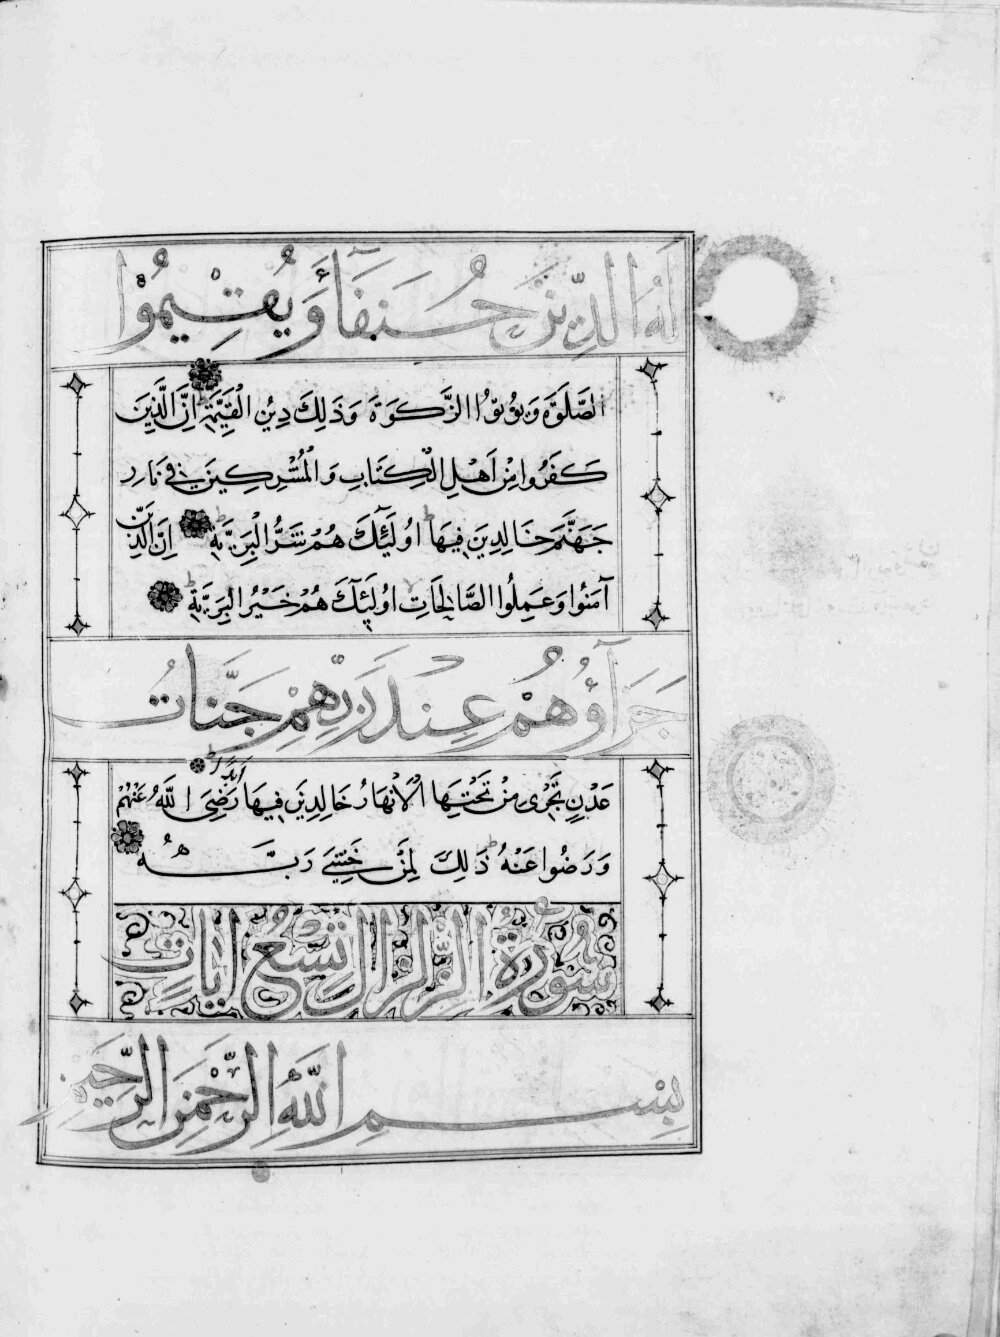 لَهُ الدِّينَ حُنَفَآءَ وَيُقِيمُوا
الصَّلَوٰةَ وَيُؤْتُوا الزَّكَوٰةَ وَذَلِكَ دِينُ الْقَيِّمَةِ إِنَّ الَّذِينَ
كَفَرُوا مِنْ أَهْلِ الْكِتَابِ وَالْمُشْرِكِينَ فِي نَارِ
جَهَنَّمَ خَالِدِينَ فِيهَا أُولَٰئِكَ هُمْ شَرُّ الْبَرِيَّةِ إِنَّ الَّذِينَ
آمَنُوا وَعَمِلُوا الصَّالِحَاتِ أُولَٰئِكَ هُمْ خَيْرُ الْبَرِيَّةِ
جَزَآؤُهُمْ عِنْدَ رَبِّهِمْ جَنَّاتُ
عَدْنٍ تَجْرِي مِنْ تَحْتِهَا الْأَنْهَارُ خَالِدِينَ فِيهَا أَبَدًا رَضِيَ اللَّهُ عَنْهُمْ
وَرَضُوا عَنْهُ ذَلِكَ لِمَنْ خَشِيَ رَبَّهُ
سُورَةُ الزِّلْزَالِ تِسْعُ آيَاتٍ
بِسْمِ اللَّهِ الرَّحْمَنِ الرَّحِيمِ